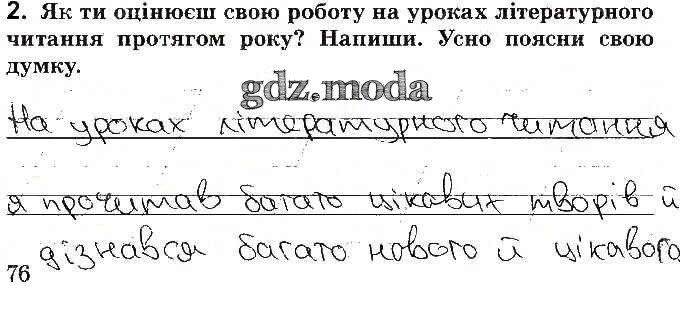 2. Як ти оцінюєш свою роботу на уроках літературного
читання протягом року? Напиши. Усно поясни свою
думку.
gdz.moda
На уроках літературного читання
я прочитав багато цікавих творів й
дізнався багато нового й цікавого
76